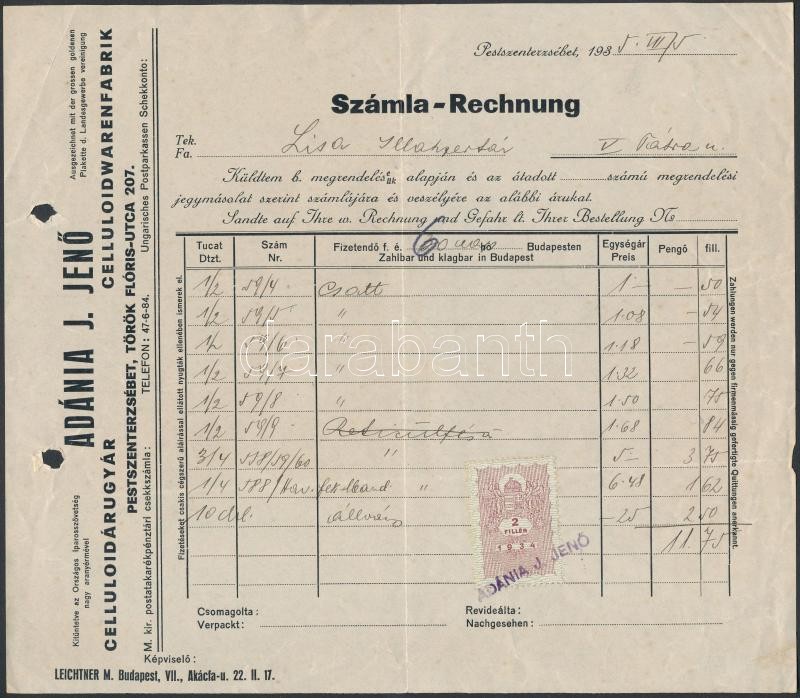 Kitüntetve az Országos Iparosszövetség
nagy aranyérmével
Ausgezeichnet mit der grossen goldenen
Plakette d. Landesgewerbe vereinigung
ADÁNIA J. JENŐ
CELLULOIDÁRUGYÁR CELLULOIDWARENFABRIK
PESTSZENTERZSÉBET, TÖRÖK FLÓRIS-UTCA 207.
TELEFON: 47-6-84.
M. kir. postatakarékpénztári csekkszámla: Ungarisches Postparkassen Schekkonto:
Pestszenterzsébet, 1935. III/5
Számla-Rechnung
Tek.
Fa. Lisa V. Tátra u.
Küldtem b. megrendelésére/ük alapján és az átadott számú megrendelési
jegymásolat szerint számlájára és veszélyére az alábbi árukat.
Sandte auf Ihre w. Rechnung und Gefahr lt. Ihrer Bestellung No
Tucat Dtzt. Szám Nr. Fizetendő f. é. 60 Budapesten Zahlbar und klagbar in Budapest Egységár Preis Pengő fill.
1/2 59/4 Csatt 1- - 50
1/2 59/5 " 1·08 - 54
1/2 59/6 " 1·18 - 59
1/2 59/7 " 1·32 66
1/2 59/8 " 1·50 75
1/2 59/9 1·68 84
3/4 558/59/60 " 5- 3 75
1/4 588/ " 6·48 1 62
10 drb. állvány -25 2 50
11.75
Fizetéseket csakis cégszerű aláírással ellátott nyugták ellenében ismerek el.
Zahlungen werden nur gegen firmenmässig gefertigte Quittungen anerkannt.
2
FILLÉR
1934
ADÁNIA J. JENŐ
darabanth
Csomagolta: Revideálta:
Verpackt: Nachgesehen:
Képviselő:
LEICHTNER M. Budapest, VII., Akácfa-u. 22. II. 17.